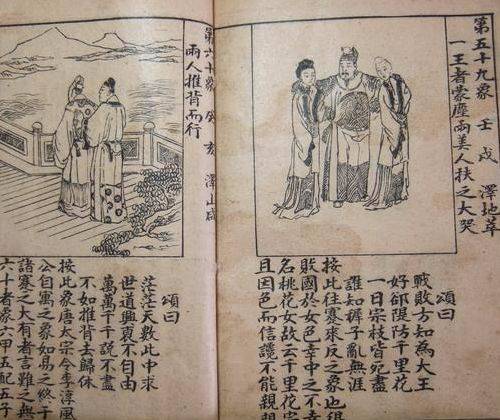 第五十九象 壬戌 澤地萃
一王者蒙塵兩美人扶之大哭
頌曰
戰敗方知為大王
好郤隄防千里花
一日宗枝皆死盡
誰知稗子亂無涯
按此往蹇來反之象也很
敗國於女色幸中之不幸
名桃花女故云千里花宗
且因色而信讒不能親親
第六十象 癸亥 澤山咸
兩人推背而行
頌曰
茫茫天數此中求
世道興衰不自由
萬萬千千說不盡
不如推背去歸休
按此象唐太宗令李淳風
公自寓之象如易之終
諸蹇之大有者言雖之無
六十者象六甲五配五子